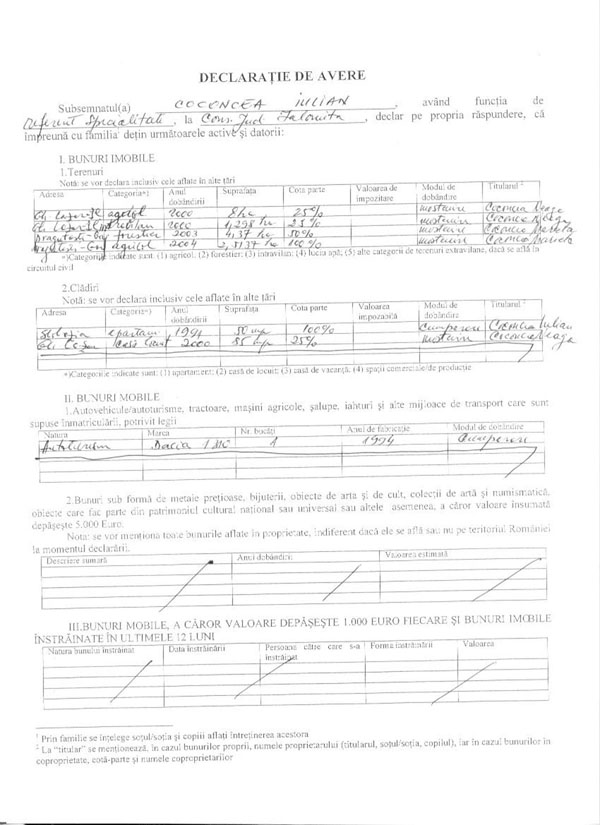 DECLARAŢIE DE AVERE
Subsemnatul(a) COCENCEA IULIAN, având funcţia de
referent Specialitate, la Cons. Jud Ialomita, declar pe propria răspundere, că
împreună cu familia¹ deţin următoarele active şi datorii:
I. BUNURI IMOBILE
1.Terenuri
Notă: se vor declara inclusiv cele aflate în alte ţări
Adresa Categoria*) Anul dobândirii Suprafaţa Cota parte Valoarea de impozitare Modul de dobândire Titularul ²
agricol 2000 8 ha 25% mostenire
2000 25% mostenire
forestier 2003 4,37 ha 50% mostenire
agricol 2004 100% mostenire
*)Categoriile indicate sunt: (1) agricol; (2) forestier; (3) intravilan; (4) luciu apă; (5) alte categorii de terenuri extravilane, dacă se află în
circuitul civil
2.Clădiri
Notă: se vor declara inclusiv cele aflate în alte ţări
Adresa Categoria*) Anul dobândirii Suprafaţa Cota parte Valoarea impozabilă Modul de dobândire Titularul ²
Slobozia apartam 50 mp 100% Cumparare Iulian
2000 25% mostenire
*)Categoriile indicate sunt: (1) apartament; (2) casă de locuit; (3) casă de vacanţă; (4) spaţii comerciale/de producţie
II. BUNURI MOBILE
1.Autovehicule/autoturisme, tractoare, maşini agricole, şalupe, iahturi şi alte mijloace de transport care sunt
supuse înmatriculării, potrivit legii
Natura Marca Nr. bucăţi Anul de fabricaţie Modul de dobândire
Autoturism Dacia 1 1994 Cumparare
2.Bunuri sub formă de metale preţioase, bijuterii, obiecte de arta şi de cult, colecţii de artă şi numismatică,
obiecte care fac parte din patrimoniul cultural national sau universal sau altele asemenea, a căror valoare însumată
depăşeşte 5.000 Euro.
Nota: se vor menţiona toate bunurile aflate în proprietate, indiferent dacă ele se află sau nu pe teritoriul României
la momentul declarării.
Descriere sumară Anul dobândirii Valoarea estimată
III.BUNURI MOBILE, A CĂROR VALOARE DEPĂŞEŞTE 1.000 EURO FIECARE ŞI BUNURI IMOBILE
ÎNSTRĂINATE ÎN ULTIMELE 12 LUNI
Natura bunului înstrăinat Data înstrăinării Persoana către care s-a înstrăinat Forma înstrăinării Valoarea
¹ Prin familie se înţelege soţul/soţia şi copiii aflaţi întreţinerea acestora
² La "titular" se menţionează, în cazul bunurilor proprii, numele proprietarului (titularul, soţul/soţia, copilul), iar în cazul bunurilor în
coproprietate, cotă-parte şi numele coproprietarilor